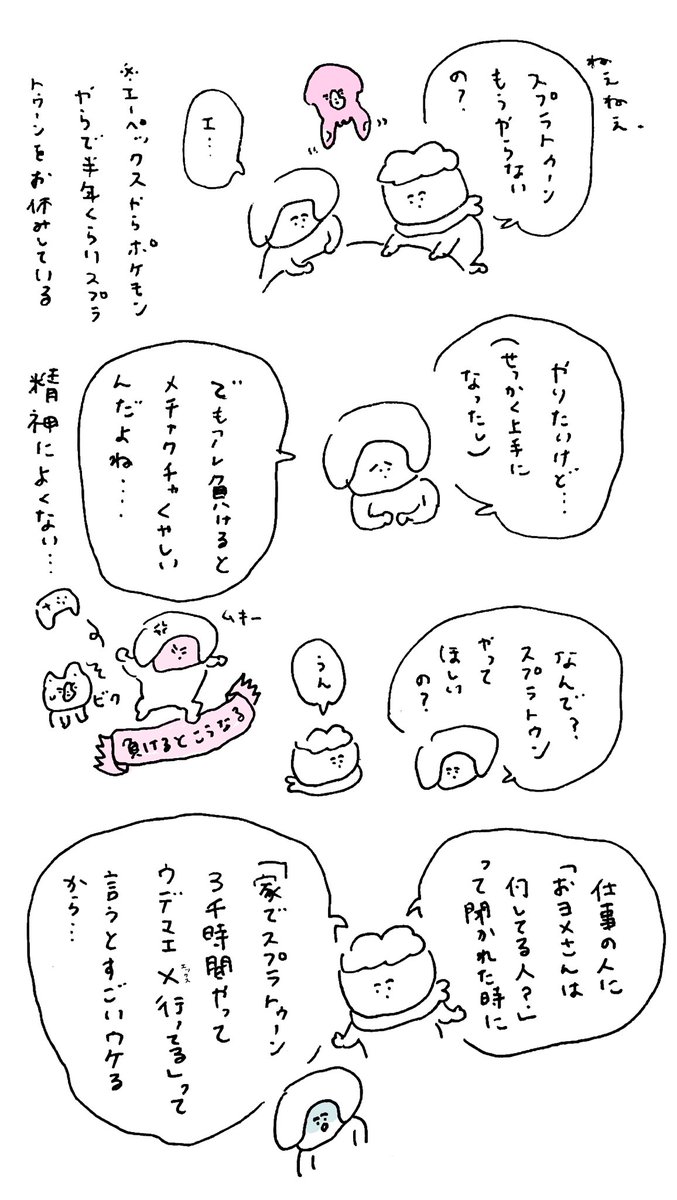 ねえねえ、
スプラトゥーン
もうやらない
の？
エ…
※エーペックスからポケモン
やらで半年くらいスプラ
トゥーンをお休みしている
やりたいけど…
(せっかく上手に
なったし)
でもアレ負けると
メチャクチャくやしい
んだよね….
精神によくない…
ムキー
ビク
負けるとこうなる
なんで？
スプラトゥン
やって
ほしい
の？
うん
仕事の人に
「おヨメさんは
何してる人？」
って聞かれた時に
「家でスプラトゥーン
3千時間やって
ウデマエX行ってる」って
エックス
言うとすごいウケる
から…